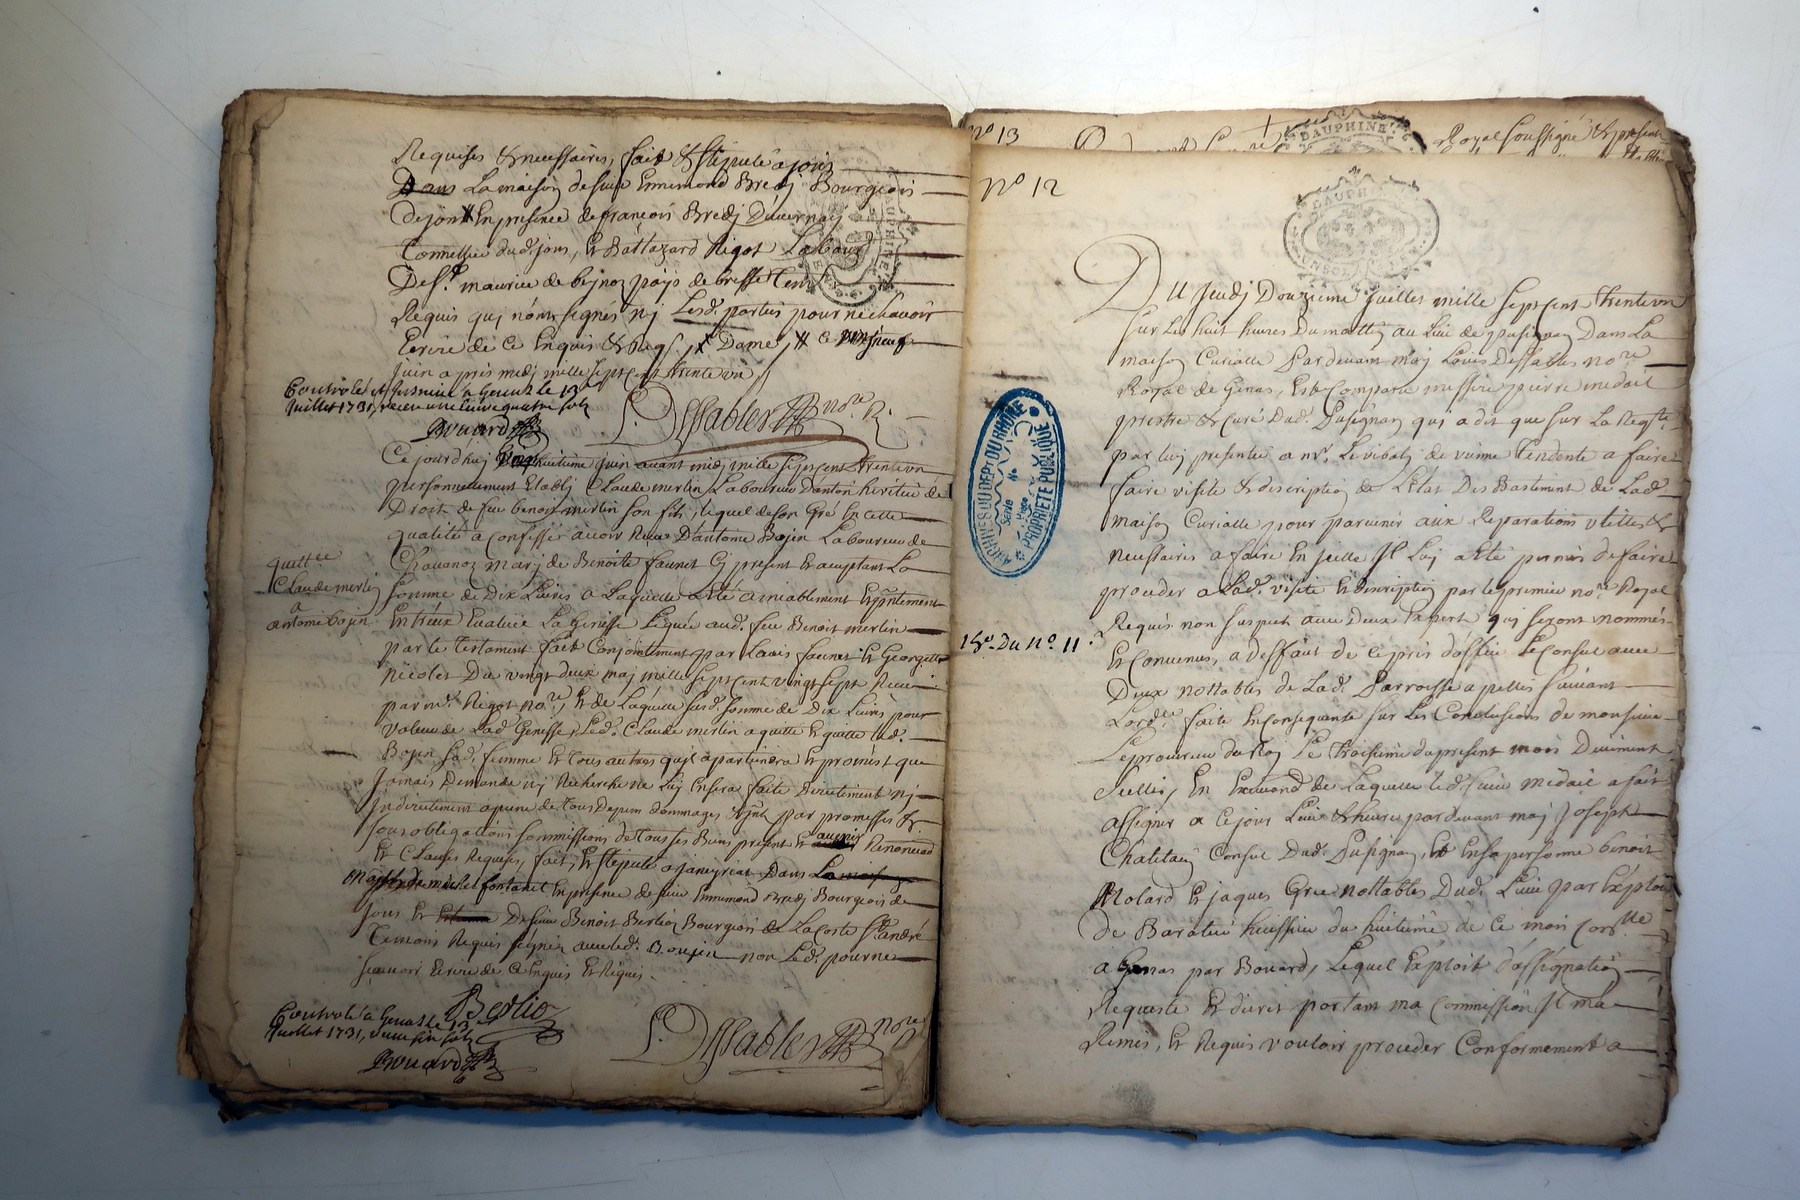 Requises & necessaires, fait & stipulé a jons
Dans La maison de sieur Ennemond Bredj Bourgeois
de jons # En presence de francois Bredj
dud. jons, Et Baltazard Rigot Labour
De St. maurice de beynoz pays de bresse tem
Requis quj n'ont signés nj Lesd. parties pour ne scavoir
Ecrire de Ce Enquis & Reqs. # Ce vingt neuf
Juin apres midj mille sept Cent trente un
Controlé et Insinué a Genas le 13e
Juillet 1731, receu une livre quatre sols
Bouard
L. Dessables nore. R.
Ce jourd'huj vingt huitieme juin avant midj mille sept cent trente un
personnellement Etablj Claude merlin Laboureur D'anton heritier de
Droit de feu benoit merlin son fils, lequel de son Gré En cette
qualité a Confessé avoir Receu D'antoine Bojin Laboureur de
Chavanoz marj de Benoite faunet Cj present Et acceptant La
somme de Dix Livres a Laquelle a Eté amiablement
Entreux Evaluée La Genisse Leguée aud. feu Benoit merlin
par le Testament fait Conjointement par Louis faunet Et Georgette
Nicolet Du vingt deux maj mille sept cent vingt sept Receu
par me. Rigot nore, Et de Laquelle susd. somme de Dix Livres pour
valeur de Lad. Genisse, Led. Claude merlin a quitté Et quitte led.
Bojin sad. femme Et tous autres qu'il apartiendra Et promis que
Jamais Demande nj Recherche ne Luj En sera faite Directement nj
Indirectement a peine de tous Depens dommages & par promesses &
sous obligations sommissions de tous ses Biens present Et avenir Renonciaon
Et Clauses Requises, fait, Et stipulé a janeyriat Dans
de michel fontanet En presence de sieur Ennemond Bredj Bourgeois de
jons Et De sieur Benoit Berlioz Bourgeois de La Coste St. André
Temoins Requis signés avec led. Boujin non Led. pour ne
scavoir Ecrire de Ce Enquis Et Requis.
quittce
Claude merlin
a
antoine bojin
Controlé a Genas le 13e
Juillet 1731, six sols
Bouard
Berlio
L. Dessables nore
No 13
DAUPHINE
Royal soussigné & present
No 12
DAUPHINE
ARCHIVES DU DEPT DU RHÔNE
Série No
PROPRIÉTÉ PUBLIQUE
15e. Du No. 11
Du Jeudj Douzieme Juillet mille sept cent trente un
sur Les huit heures du mattin au Lieu de pusignan Dans La
maison Curialle Pardevant moj Louis Dessables nore
Royal de Genas, Est Comparu messire pierre medail
prestre & Curé Dud. Pusignan quj a dit que sur La Reqte.
par luj presentée a mr. Le vibalj de vienne Tendente a faire
faire visite & description de L'Etat Des Bastiment de Lad.
maison Curialle pour parvenir aux Reparations utilles &
necessaires a faire En jcelle Il Luj a Eté permis de faire
proceder a Lad. visite Et description par le premier nore Royal
Requis non suspect avec Deux Expert quj seront nommés
Et Convenus, a deffaut de ce pris d'office Le Consul avec
Deux nottables de Lad. Parroisse apellés suivant
Lordce faite En Consequence sur Les Conclusions de monsieur
Le procureur du Roy Le troisieme du present mois Duement
scellé, En Execuon de Laquelle led. sieur medail a fait
assigner a Ce jour Lieu & heure pardevant moj Joseph
Consul Dud. Pusignan, Et En sa personne benoit
Molard Et jaques Gree nottables Dud. Lieu par Exploit
de Baratier huissier du huitieme de Ce mois Conlle
a Genas par Bouard, Lequel Exploit d'assignation
Requeste Et decret portant ma Commission Il m'a
Remis, Et Requis vouloir proceder Conformement a